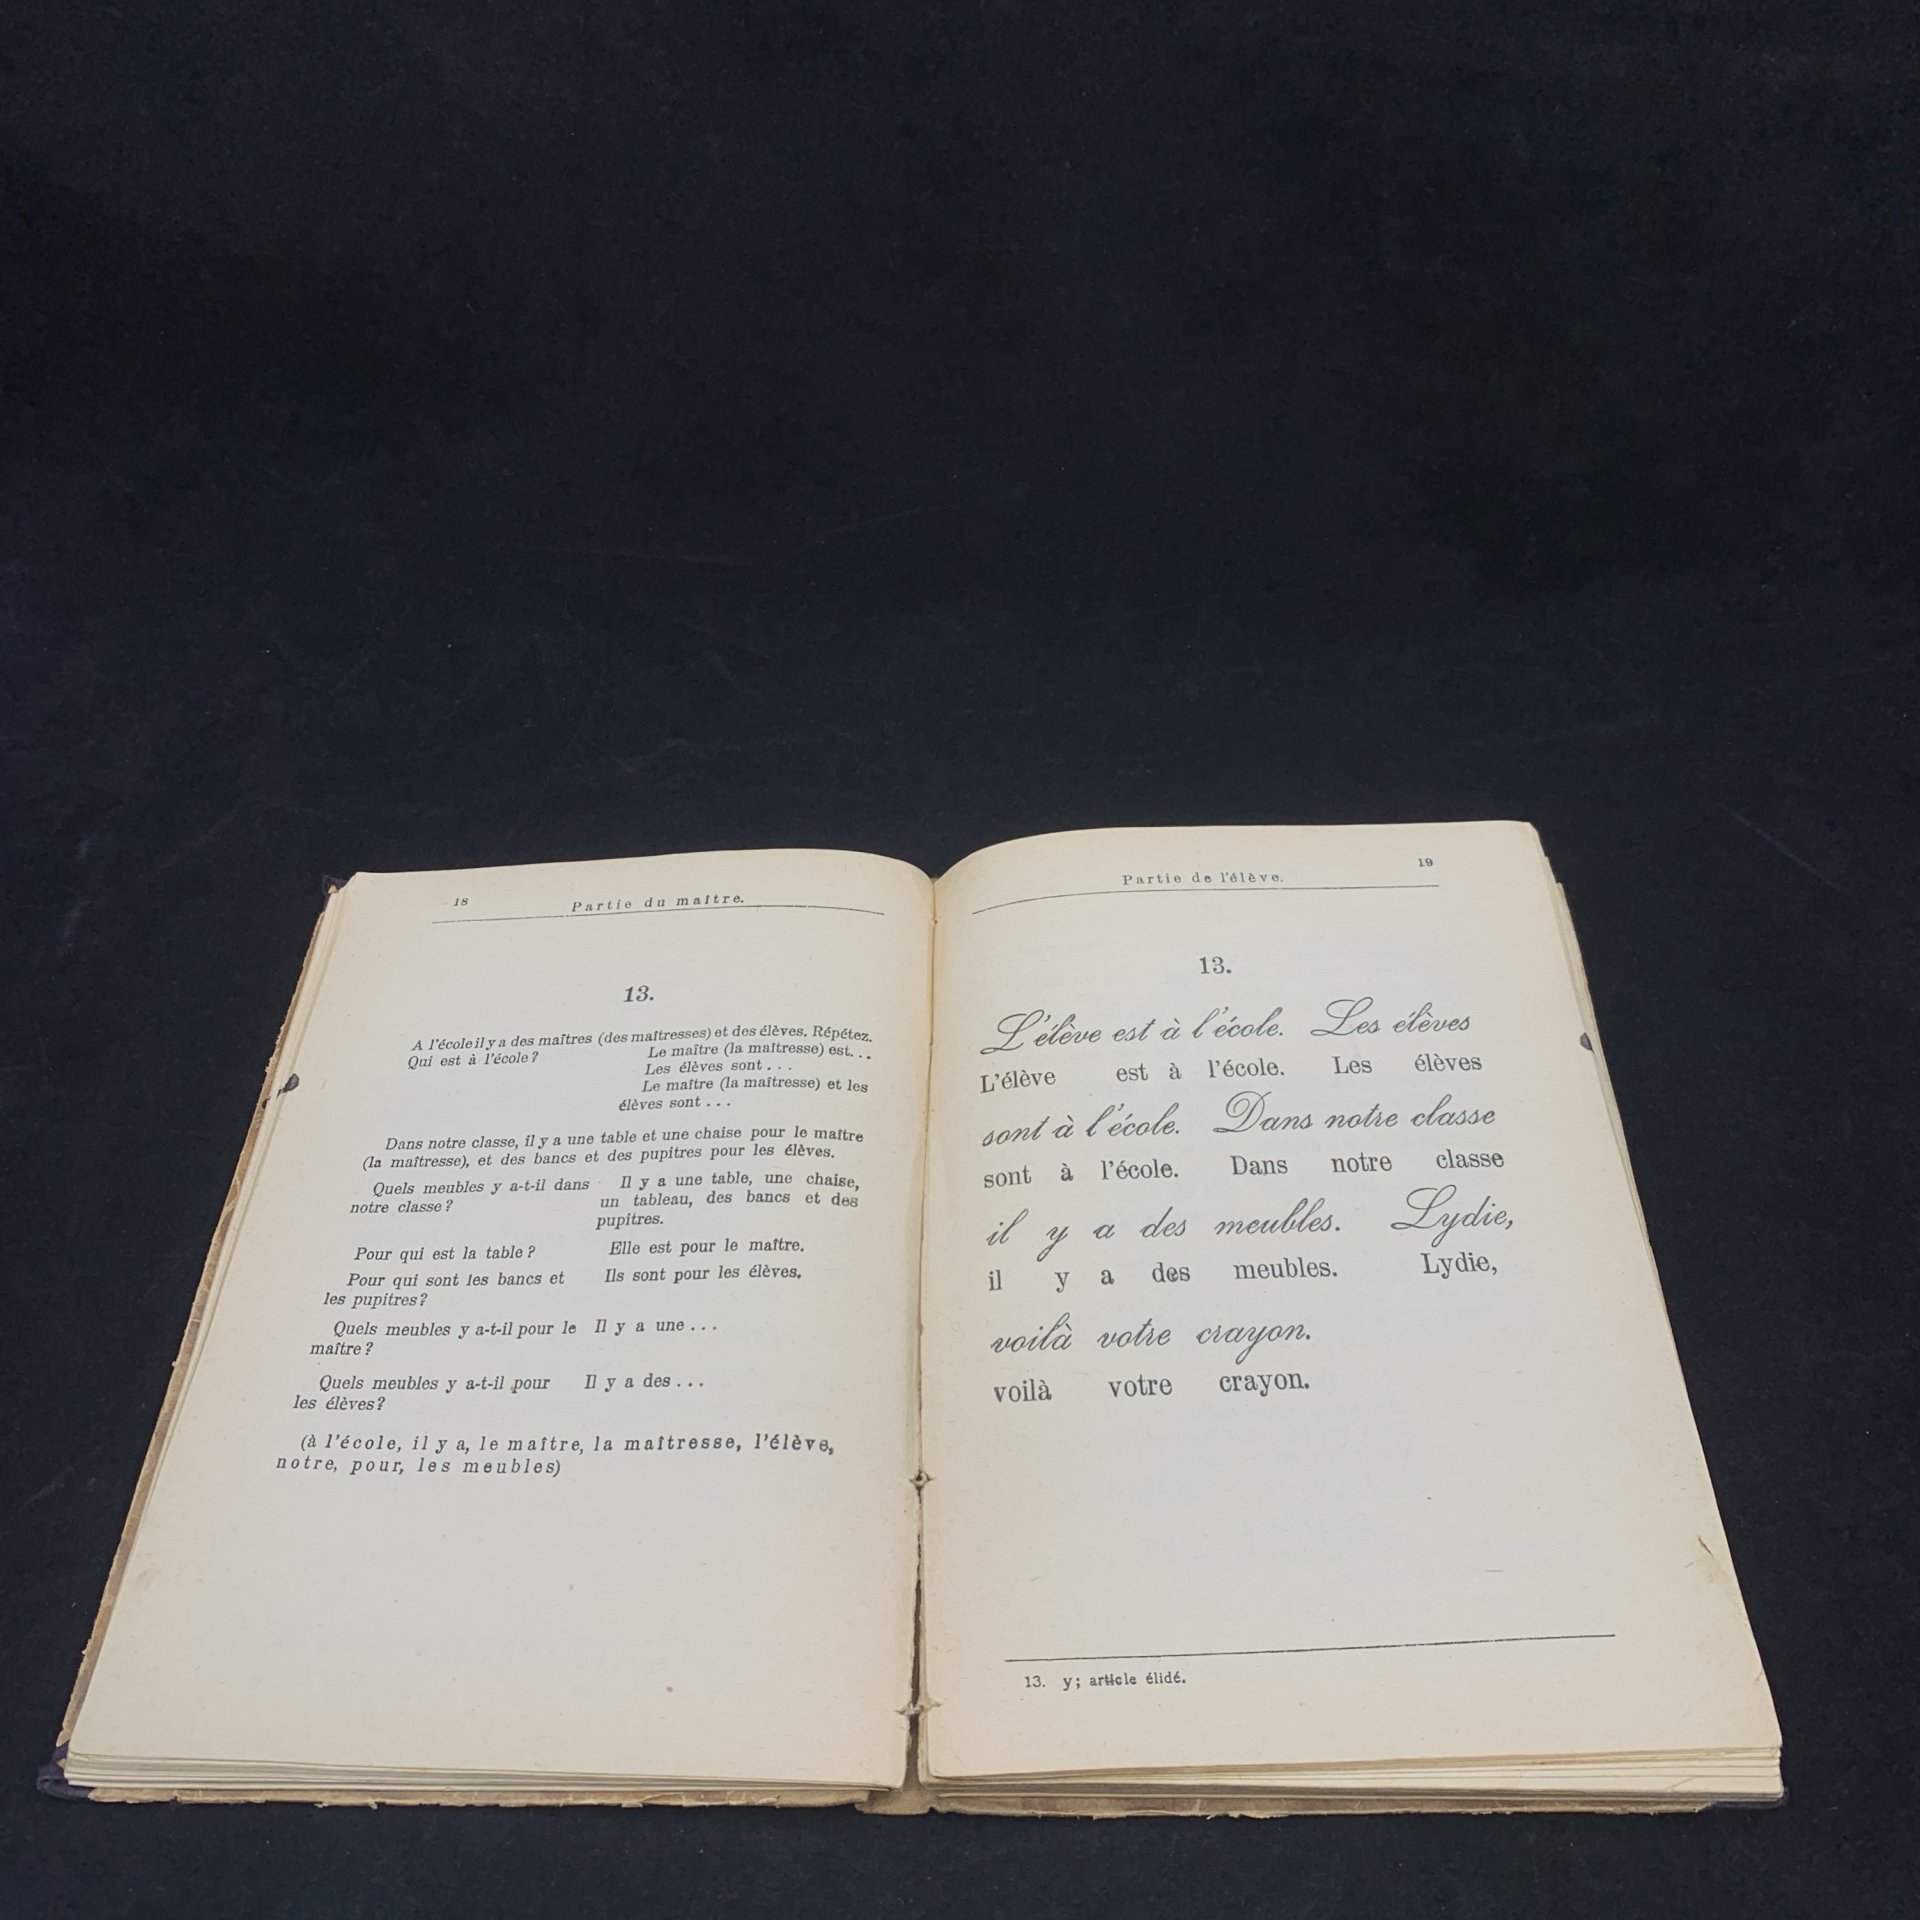 18
Partie du maître.
13.
A l'école il y a des maîtres (des maîtresses) et des élèves. Répétez.
Qui est à l'école? Le maître (la maîtresse) est...
Les élèves sont...
Le maître (la maîtresse) et les
élèves sont...
Dans notre classe, il y a une table et une chaise pour le maître
(la maîtresse), et des bancs et des pupitres pour les élèves.
Quels meubles y a-t-il dans Il y a une table, une chaise,
notre classe? un tableau, des bancs et des
pupitres.
Pour qui est la table? Elle est pour le maître.
Pour qui sont les bancs et Ils sont pour les élèves.
les pupitres?
Quels meubles y a-t-il pour le Il y a une...
maître?
Quels meubles y a-t-il pour Il y a des...
les élèves?
(à l'école, il y a, le maître, la maîtresse, l'élève,
notre, pour, les meubles)
Partie de l'élève.
19
13.
L'élève est à l'école. Les élèves
L'élève est à l'école. Les élèves
sont à l'école. Dans notre classe
sont à l'école. Dans notre classe
il y a des meubles. Lydie,
il y a des meubles. Lydie,
voilà votre crayon.
voilà votre crayon.
13. y; article élidé.